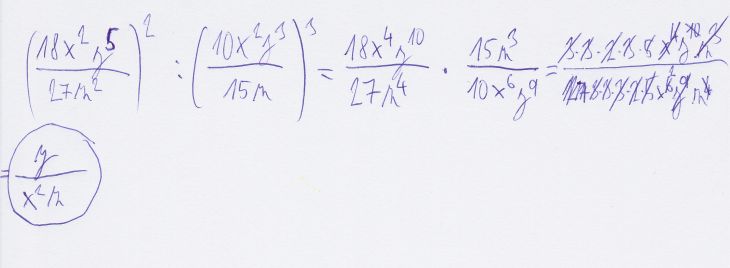 (18x²y⁵/27n²)² : (10x²y³/15n)³ = 18x⁴y¹⁰/27n⁴ · 15n³/10x⁶y⁹ =
= y/x²n